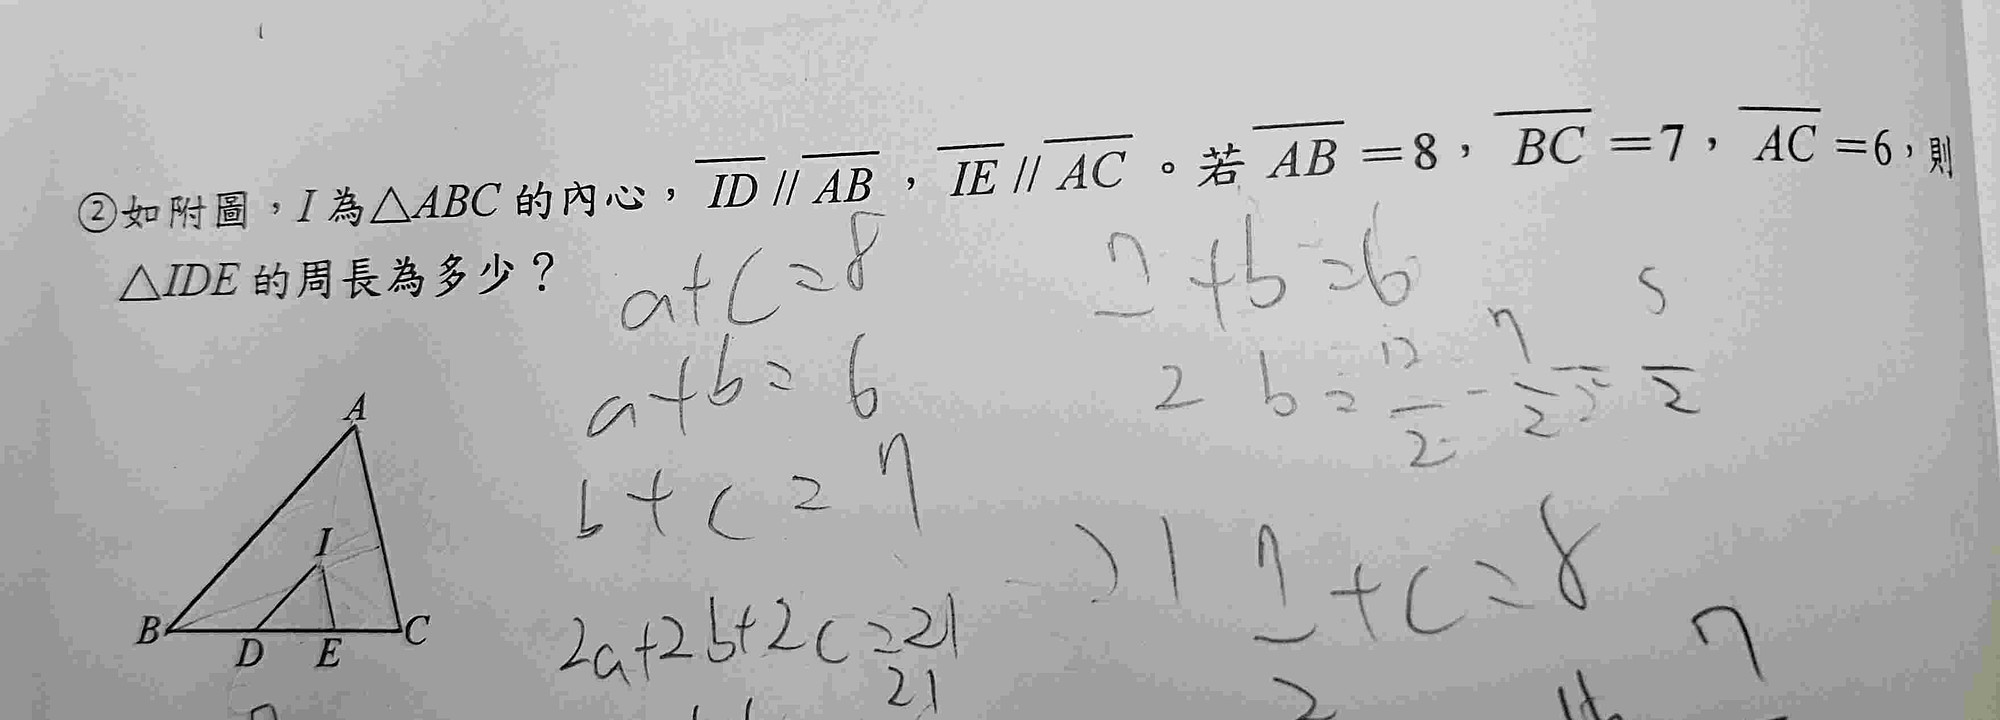 ②如附圖，I為△ABC的內心，ID // AB，IE // AC。若AB=8，BC=7，AC=6，則
△IDE的周長為多少？
a+c=8
a+b=6
b+c=7
2a+2b+2c=21
21
7/2+b=6
b=12/2-7/2=5/2
7/2+c=8
7
A
I
B
D
E
C